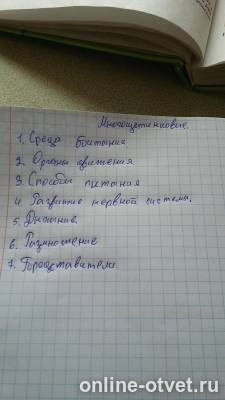 Многощетинковые.
1. Среда обитания
2. Органы движения
3. Способы питания
4. Развитие нервной системы.
5. Дыхание.
6. Размножение
7. Представители.
online-otvet.ru